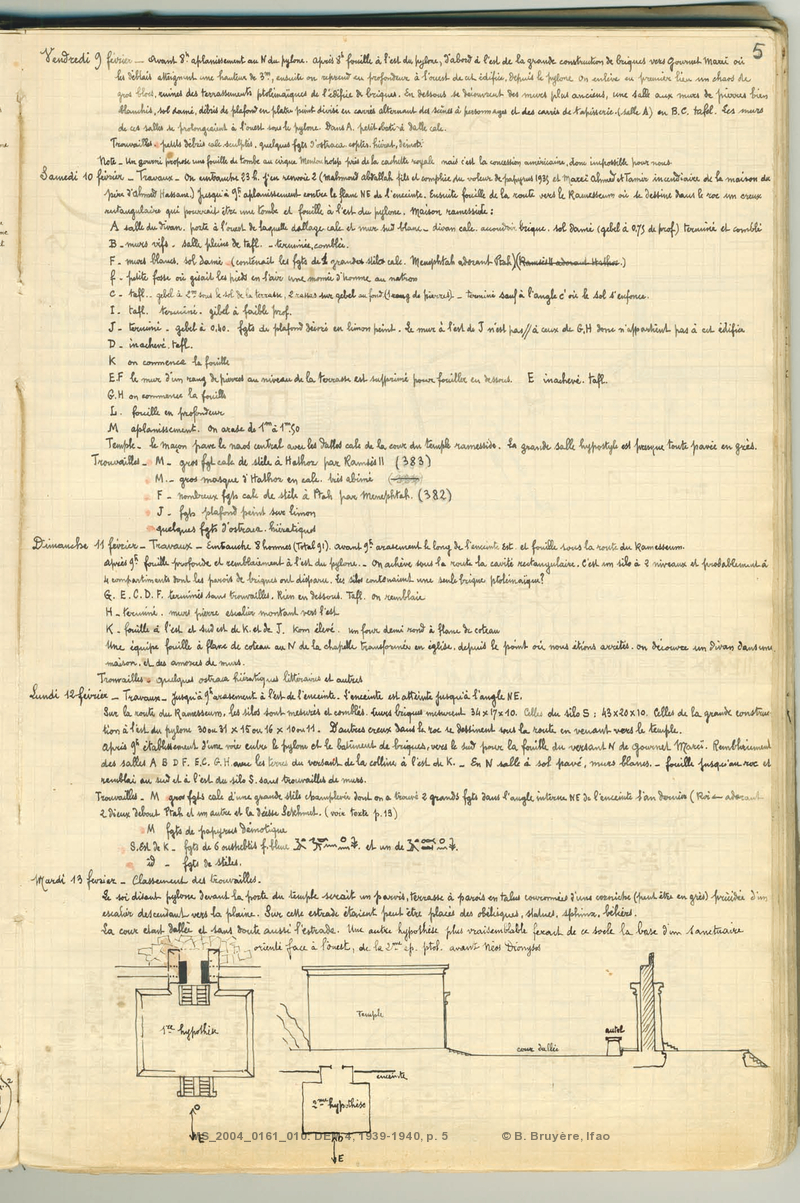 5
Vendredi 9 février — Avant 8h aplanissement au N du pylone. Après 8h fouille à l'est du pylone, d'abord à l'est de la grande construction de briques vers Gournet Marei où
les déblais atteignent une hauteur de 3m, ensuite on reprend en profondeur à l'ouest de cet édifice. Depuis le pylone on enlève en premier lieu un chaos de
gros blocs, ruines des terrassements ptolémaiques de l'édifice de briques. En dessous se découvrent des murs plus anciens, une salle aux murs de pierres bien
blanchis, sol damé, débris de plafond en platre peint divisé en carrés alternant des scènes à personnages et des carrés de tapisserie (salle A) en B.C. tafl. Les murs
de ces salles se prolongeaient à l'ouest sous le pylone. Dans A. petit dalle calc.
Trouvailles - petits débris calc. sculptés, quelques fgts d'ostraca coptes, hiérat, démot.
Note - Un gourni propose une fouille de tombe au cirque près de la cachette royale mais c'est la concession américaine, donc impossible pour nous.
Samedi 10 février - Travaux - On embauche 23 h. J'en renvoie 2 (Mahmoud Abdallah fils et complice du voleur de papyrus 1935 et Marei Ahmed et Tamir incendiaire de la maison du
père d'Ahmed Hassane.) Jusqu'à 9h aplanissement contre le flanc NE de l'enceinte. Ensuite fouille de la route vers le Ramesseum où se dessine dans le roc un creux
rectangulaire qui pourrait être une tombe et fouille à l'est du pylone. Maison ramesside :
A salle du divan. porte à l'ouest de laquelle dallage calc. et mur sud blanc - divan calc. accoudoir brique. sol damé (gebel à 0,75 de prof.) terminé et comblé
B - murs vifs - salle pleine de tafl. - terminée, comblée.
F - murs blancs, sol damé (contenait les fgts de 1 grande stèle calc. Menephtah adorant Ptah) (Ramsès II adorant Hathor.)
f - petite fosse où gisait les pieds en l'air une momie d'homme au natron
C - tafl.. gebel à 2m sous le sol de la terrasse, 2 rasses sur gebel au fond (1 rang de pierres). - terminé sauf à l'angle c' où le sol s'enfonce.
I - tafl. terminé. gebel à faible prof.
J - terminé - gebel à 0.40. fgts de plafond décoré en limon peint. Le mur à l'est de J n'est pas // à ceux de G.H donc n'appartient pas à cet édifice
D - inachevé. tafl.
K on commence la fouille
E.F le mur d'un rang de pierres au niveau de la terrasse est supprimé pour fouiller en dessous. E inachevé. tafl.
G.H on commence la fouille
L. fouille en profondeur
M aplanissement. On arase de 1m à 1m,50
Temple - le maçon pave le naos central avec les dalles calc de la cour du temple ramesside. La grande salle hypostyle est presque toute pavée en grès.
Trouvailles - M - gros fgt calc de stèle à Hathor par Ramsès II (383)
M. - gros masque d'Hathor en calc. très abimé
F - nombreux fgts calc de stèle à Ptah par Menephtah. (382)
J - fgts plafond peint sur limon
quelques fgts d'ostraca hiératiques
Dimanche 11 février - Travaux - Embauche 8 hommes (Total 91). Avant 9h arasement le long de l'enceinte Est. et fouille sous la route du Ramesseum.
Après 9h fouille profonde et remblaiement à l'est du pylone. - On achève sous la route la cavité rectangulaire. C'est un silo à 2 niveaux et probablement à
4 compartiments dont les parois de briques ont disparu. Les silos contenaient une seule brique ptolémaique?
G. E. C. D. F. terminés sans trouvailles. Rien en dessous. Tafl. On remblaie
H - terminé. murs pierre escalier montant vers l'est
K - fouille à l'est et sud est de K. et de J. Kom élevé. un four demi rond à flanc de coteau
Une équipe fouille à flanc de coteau au N de la chapelle transformée en église, depuis le point où nous étions arrêtés. on découvre un divan dans une
maison. et des amorces de murs.
Trouvailles - quelques ostraca hiératiques littéraires et autres
Lundi 12 février - Travaux - Jusqu'à 9h arasement à l'est de l'enceinte. L'enceinte est atteinte jusqu'à l'angle NE.
Sur la route du Ramesseum, les silos sont mesurés et comblés. Leurs briques mesurent 34 x 17 x 10. Celles du silo S : 43 x 20 x 10. Celles de la grande construc-
tion à l'est du pylone 30 ou 31 x 15 ou 16 x 10 ou 11. D'autres creux dans le roc se dessinent sous la route en venant vers le temple.
Après 9h établissement d'une voie entre le pylone et le batiment de briques, vers le sud pour la fouille du versant N de Gournet Mareï. Remblaiement
des salles A B D F. E.C. G.H avec les terres du versant de la colline à l'est de K. - En N salle à sol pavé, murs blancs. - fouille jusqu'au roc et
remblai au sud et à l'est du silo S. sans trouvailles de murs.
Trouvailles - M gros fgts calc d'une grande stèle champlevée dont on a trouvé 2 grands fgts dans l'angle interne NE de l'enceinte l'an dernier (Roi adorant
2 dieux debout Ptah et un autre et la déesse Sekhmet. (voir texte p.13)
M fgts de papyrus démotique
S. Est de K - fgts de 6 oushebtis f. bleue et un de
id - fgts de stèles.
Mardi 13 fevrier - Classement des trouvailles.
Le soi disant pylone devant la porte du temple serait un parvis, terrasse à parois en talus couronnées d'une corniche (peut être en grès) précédée d'un
escalier descendant vers la plaine. Sur cette estrade étaient peut être placés des obélisques, statues, sphinx, béliers.
La cour était dallée et sans doute aussi l'estrade. Une autre hypothèse plus vraisemblable ferait de ce socle la base d'un sanctuaire
orienté face à l'ouest, de la 2me ép. ptol. avant Néos Dionysos
1ère hypothèse
Temple
autel
cour dallée
enceinte
2me hypothèse
O
E
O
E
MS_2004_0161_010. DEM 4, 1939-1940, p. 5 © B. Bruyère, Ifao